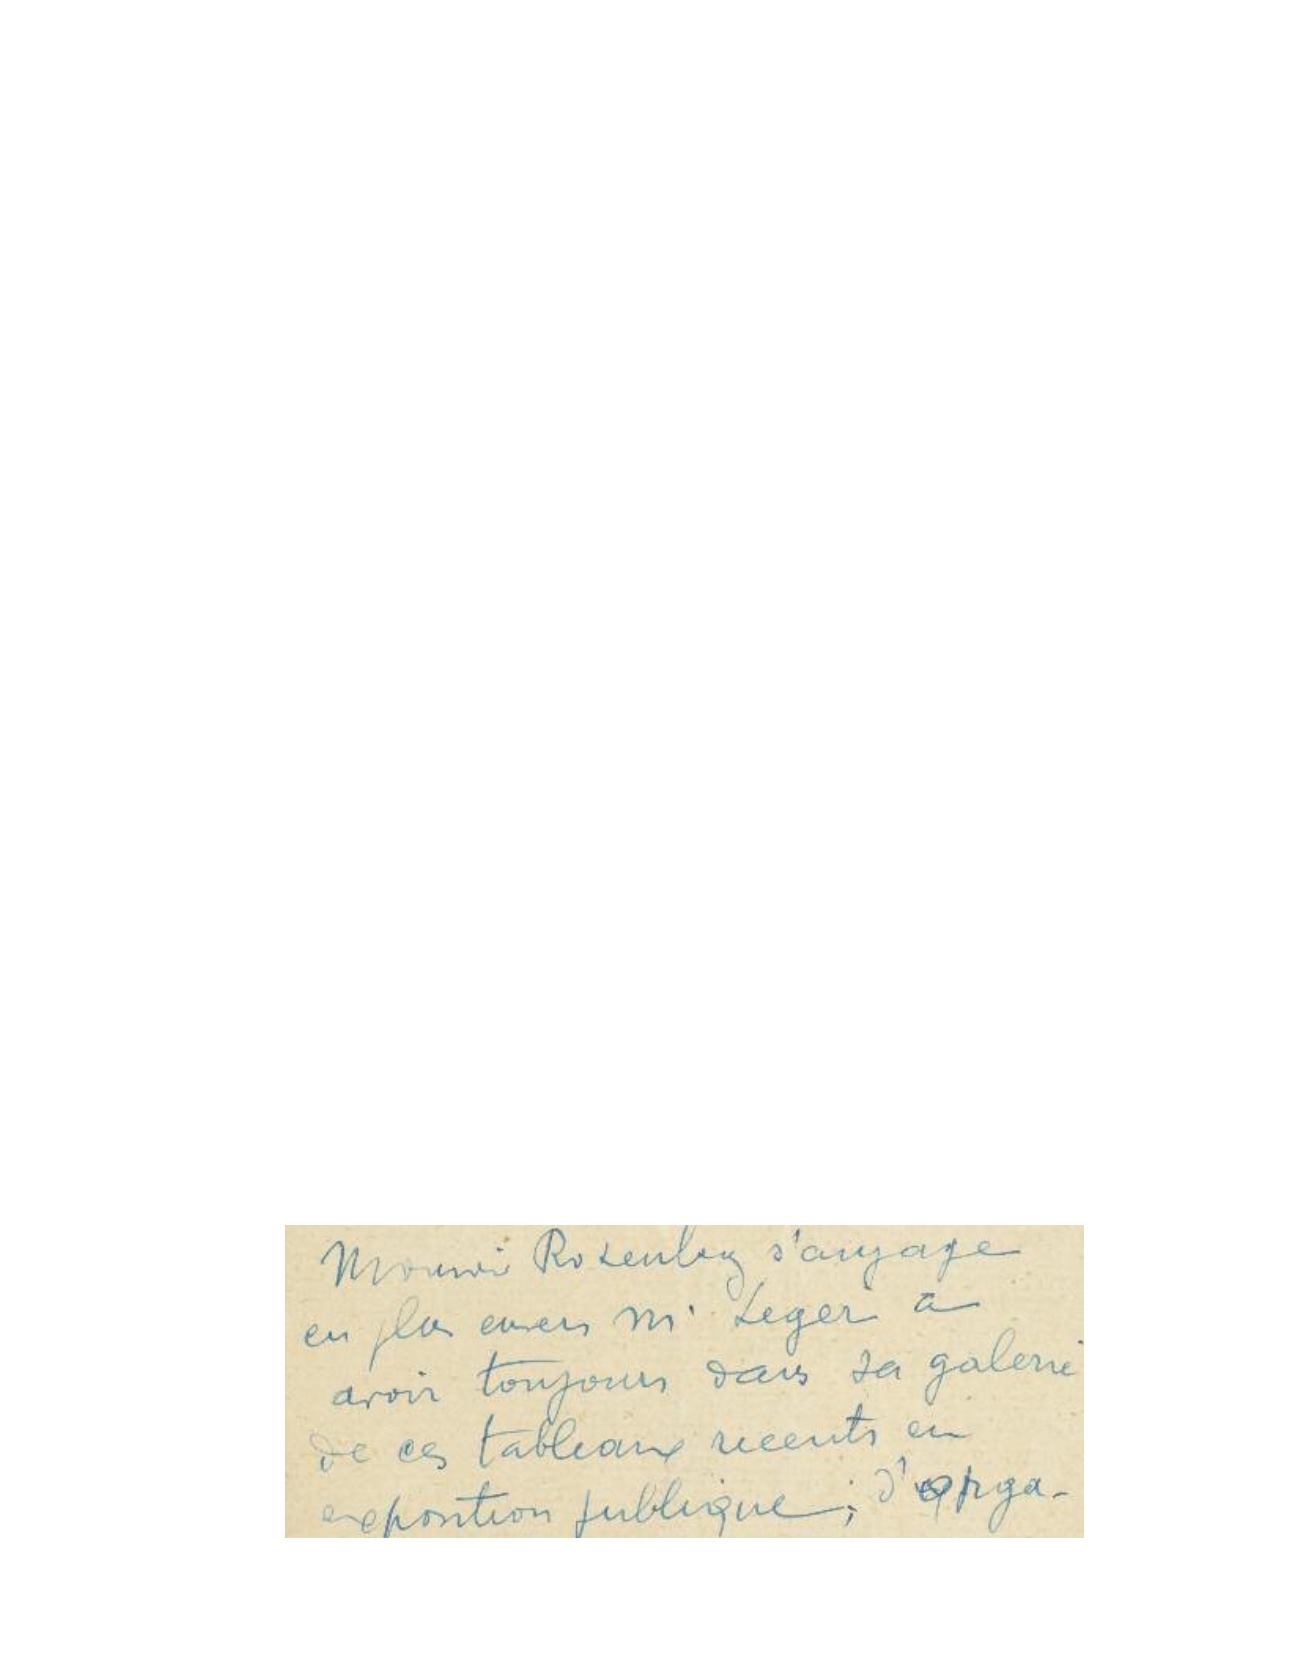 Monsieur Rosenberg s'engage
en plus envers Mr Leger à
avoir toujours dans sa galerie
de ces tableaux recents en
exposition publique; d'orga-